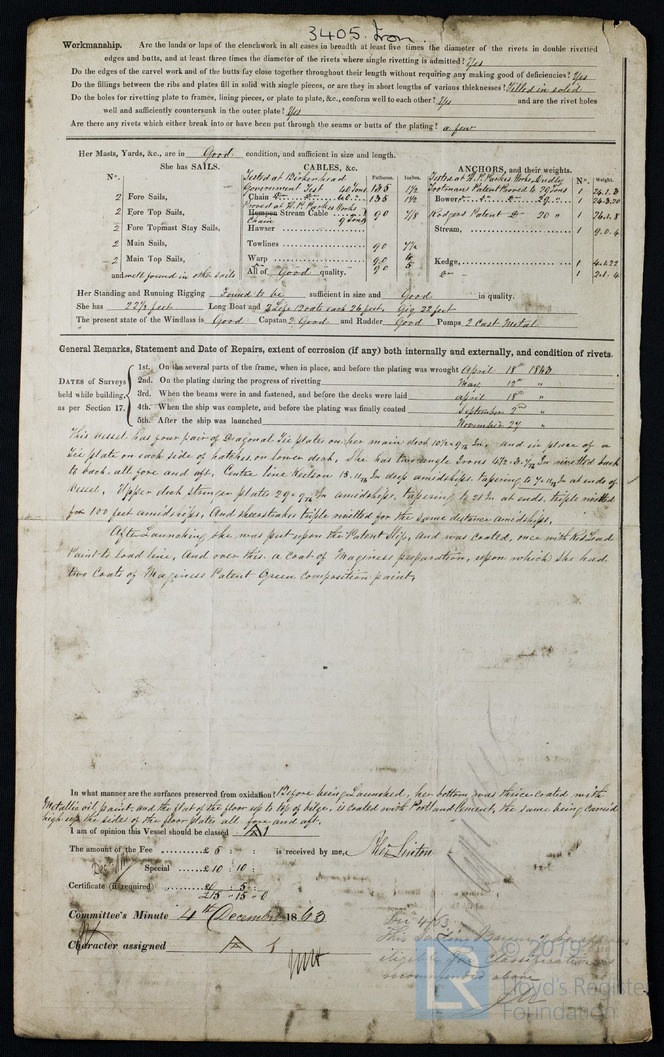 3405. Iron
Workmanship. Are the lands or laps of the clenchwork in all cases in breadth at least five times the diameter of the rivets in double rivetted
edges and butts, and at least three times the diameter of the rivets where single rivetting is admitted? Yes
Do the edges of the carvel work and of the butts fay close together throughout their length without requiring any making good of deficiencies? Yes
Do the fillings between the ribs and plates fill in solid with single pieces, or are they in short lengths of various thicknesses? Filled in solid
Do the holes for rivetting plate to frames, lining pieces, or plate to plate, &c., conform well to each other? Yes and are the rivet holes
well and sufficiently countersunk in the outer plate? Yes
Are there any rivets which either break into or have been put through the seams or butts of the plating? a few
Her Masts, Yards, &c., are in Good condition, and sufficient in size and length.
She has SAILS. CABLES, &c. ANCHORS, and their weights.
N°. Fathoms. Inches. N°. Weight.
Tested at Birkenhead
Government Test 40 Tons 135 1½
Tested at H. P. Parkes Works, Dudley
Trotmans Patent Proved to 29 Tons 1 24.1.3
2 Fore Sails, Chain Do Do 40 " 135 1½ Bower 29 " 1 24.3.20
Proved at H. P. Parkes Works
2 Fore Top Sails, Hempen Stream Cable 90 7/8 Rodgers Patent Do 20 " 1 24.1.8
Chain 9 Tons
2 Fore Topmast Stay Sails, Hawser Stream, 1 9.0.4
2 Main Sails, Towlines 90
2 Main Top Sails, Warp 90 Kedge, 1
and well found in other sails All of Good quality. 90 5 Do 1 2.1.4
Her Standing and Running Rigging Found to be sufficient in size and Good in quality.
She has 22½ feet Long Boat and 2 Life Boats each 26 feet, Gig 22 feet
The present state of the Windlass is Good Capstan 2 Good and Rudder Good Pumps 2 Cast Metal
General Remarks, Statement and Date of Repairs, extent of corrosion (if any) both internally and externally, and condition of rivets.
DATES of Surveys held while building, as per Section 17.
1st. On the several parts of the frame, when in place, and before the plating was wrought April 18th 1863
2nd. On the plating during the progress of rivetting May 12th "
3rd. When the beams were in and fastened, and before the decks were laid April 18th "
4th. When the ship was complete, and before the plating was finally coated September 2nd "
5th. After the ship was launched November 27 "
This Vessel has four pair of Diagonal Tie plates on her main deck 10½ × 9/16 In; and in place of a
Tie plate on each side of hatches, on lower deck, She has two angle Irons rivetted back
to back, all fore and aft, Centre line Keelson In deep amidships, tapering to In at ends of
Vessel, Upper deck stringer plates 29 × In amidships, tapering to 21 In at ends, triple rivetted
for 100 feet amidships, And sheerstrakes triple rivetted for the same distance amidships,
After Launching she was put upon the Patent Slip, and was coated, once with Red Lead
Paint to load line, And over this a coat of Maginess preparation, upon which she had
two Coats of Maginess Patent Green Composition paint,
In what manner are the surfaces preserved from oxidation? Before being Launched, her bottom was thrice coated with
Metallic oil paint, and the flat of the floor up to top of bilge, is coated with Portland Cement, the same being carried
high up the sides of the floor plates all fore and aft.
I am of opinion this Vessel should be classed A 1
The amount of the Fee £ 5 : : is received by me,
Special £ 10 : 10 :
Certificate (if required) £0 : 5 :
£15 " 15 " 0
Committee's Minute 4th December 1863
Character assigned A 1
Dec 4/63
This Sailing Barque
eligible for Classification as
recommended above
© 2019
LR Lloyd's Register
Foundation